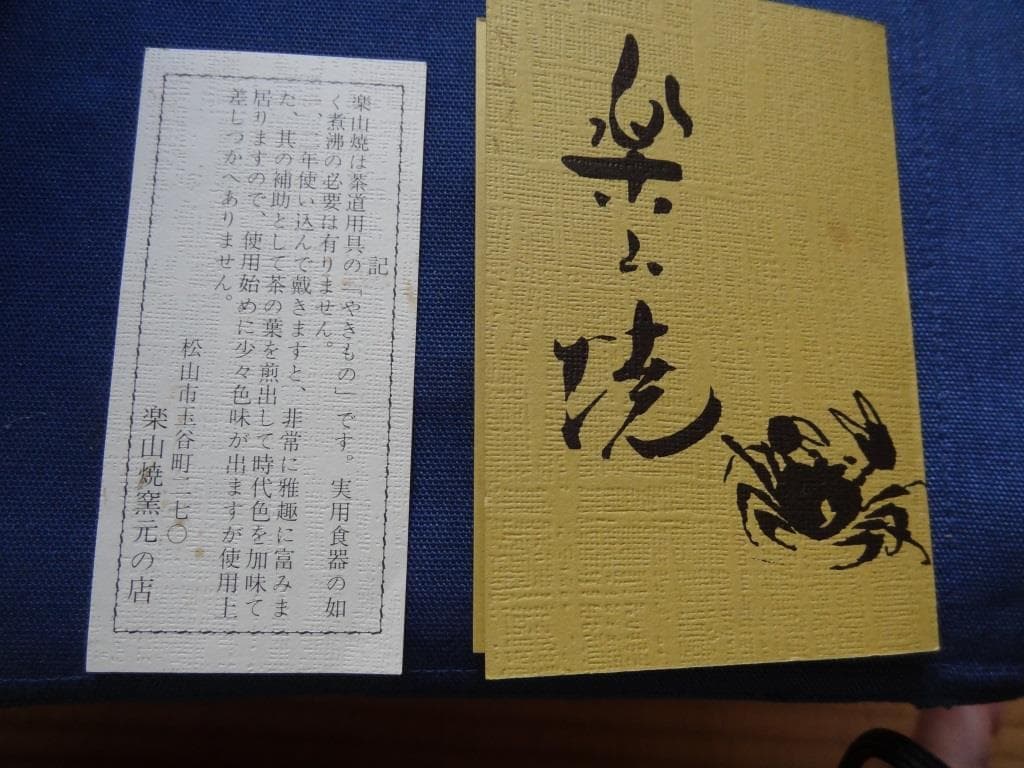 楽山焼
記
楽山焼は茶道用具の「やきもの」です。実用食器の如
く煮沸の必要は有りません。
一、二年使い込んで戴きますと、非常に雅趣に富みま
た、其の補助として茶の葉を煎出して時代色を加味て
居りますので、使用始めに少々色味が出ますが使用上
差しつかへありません。
松山市玉谷町二七〇
楽山焼窯元の店